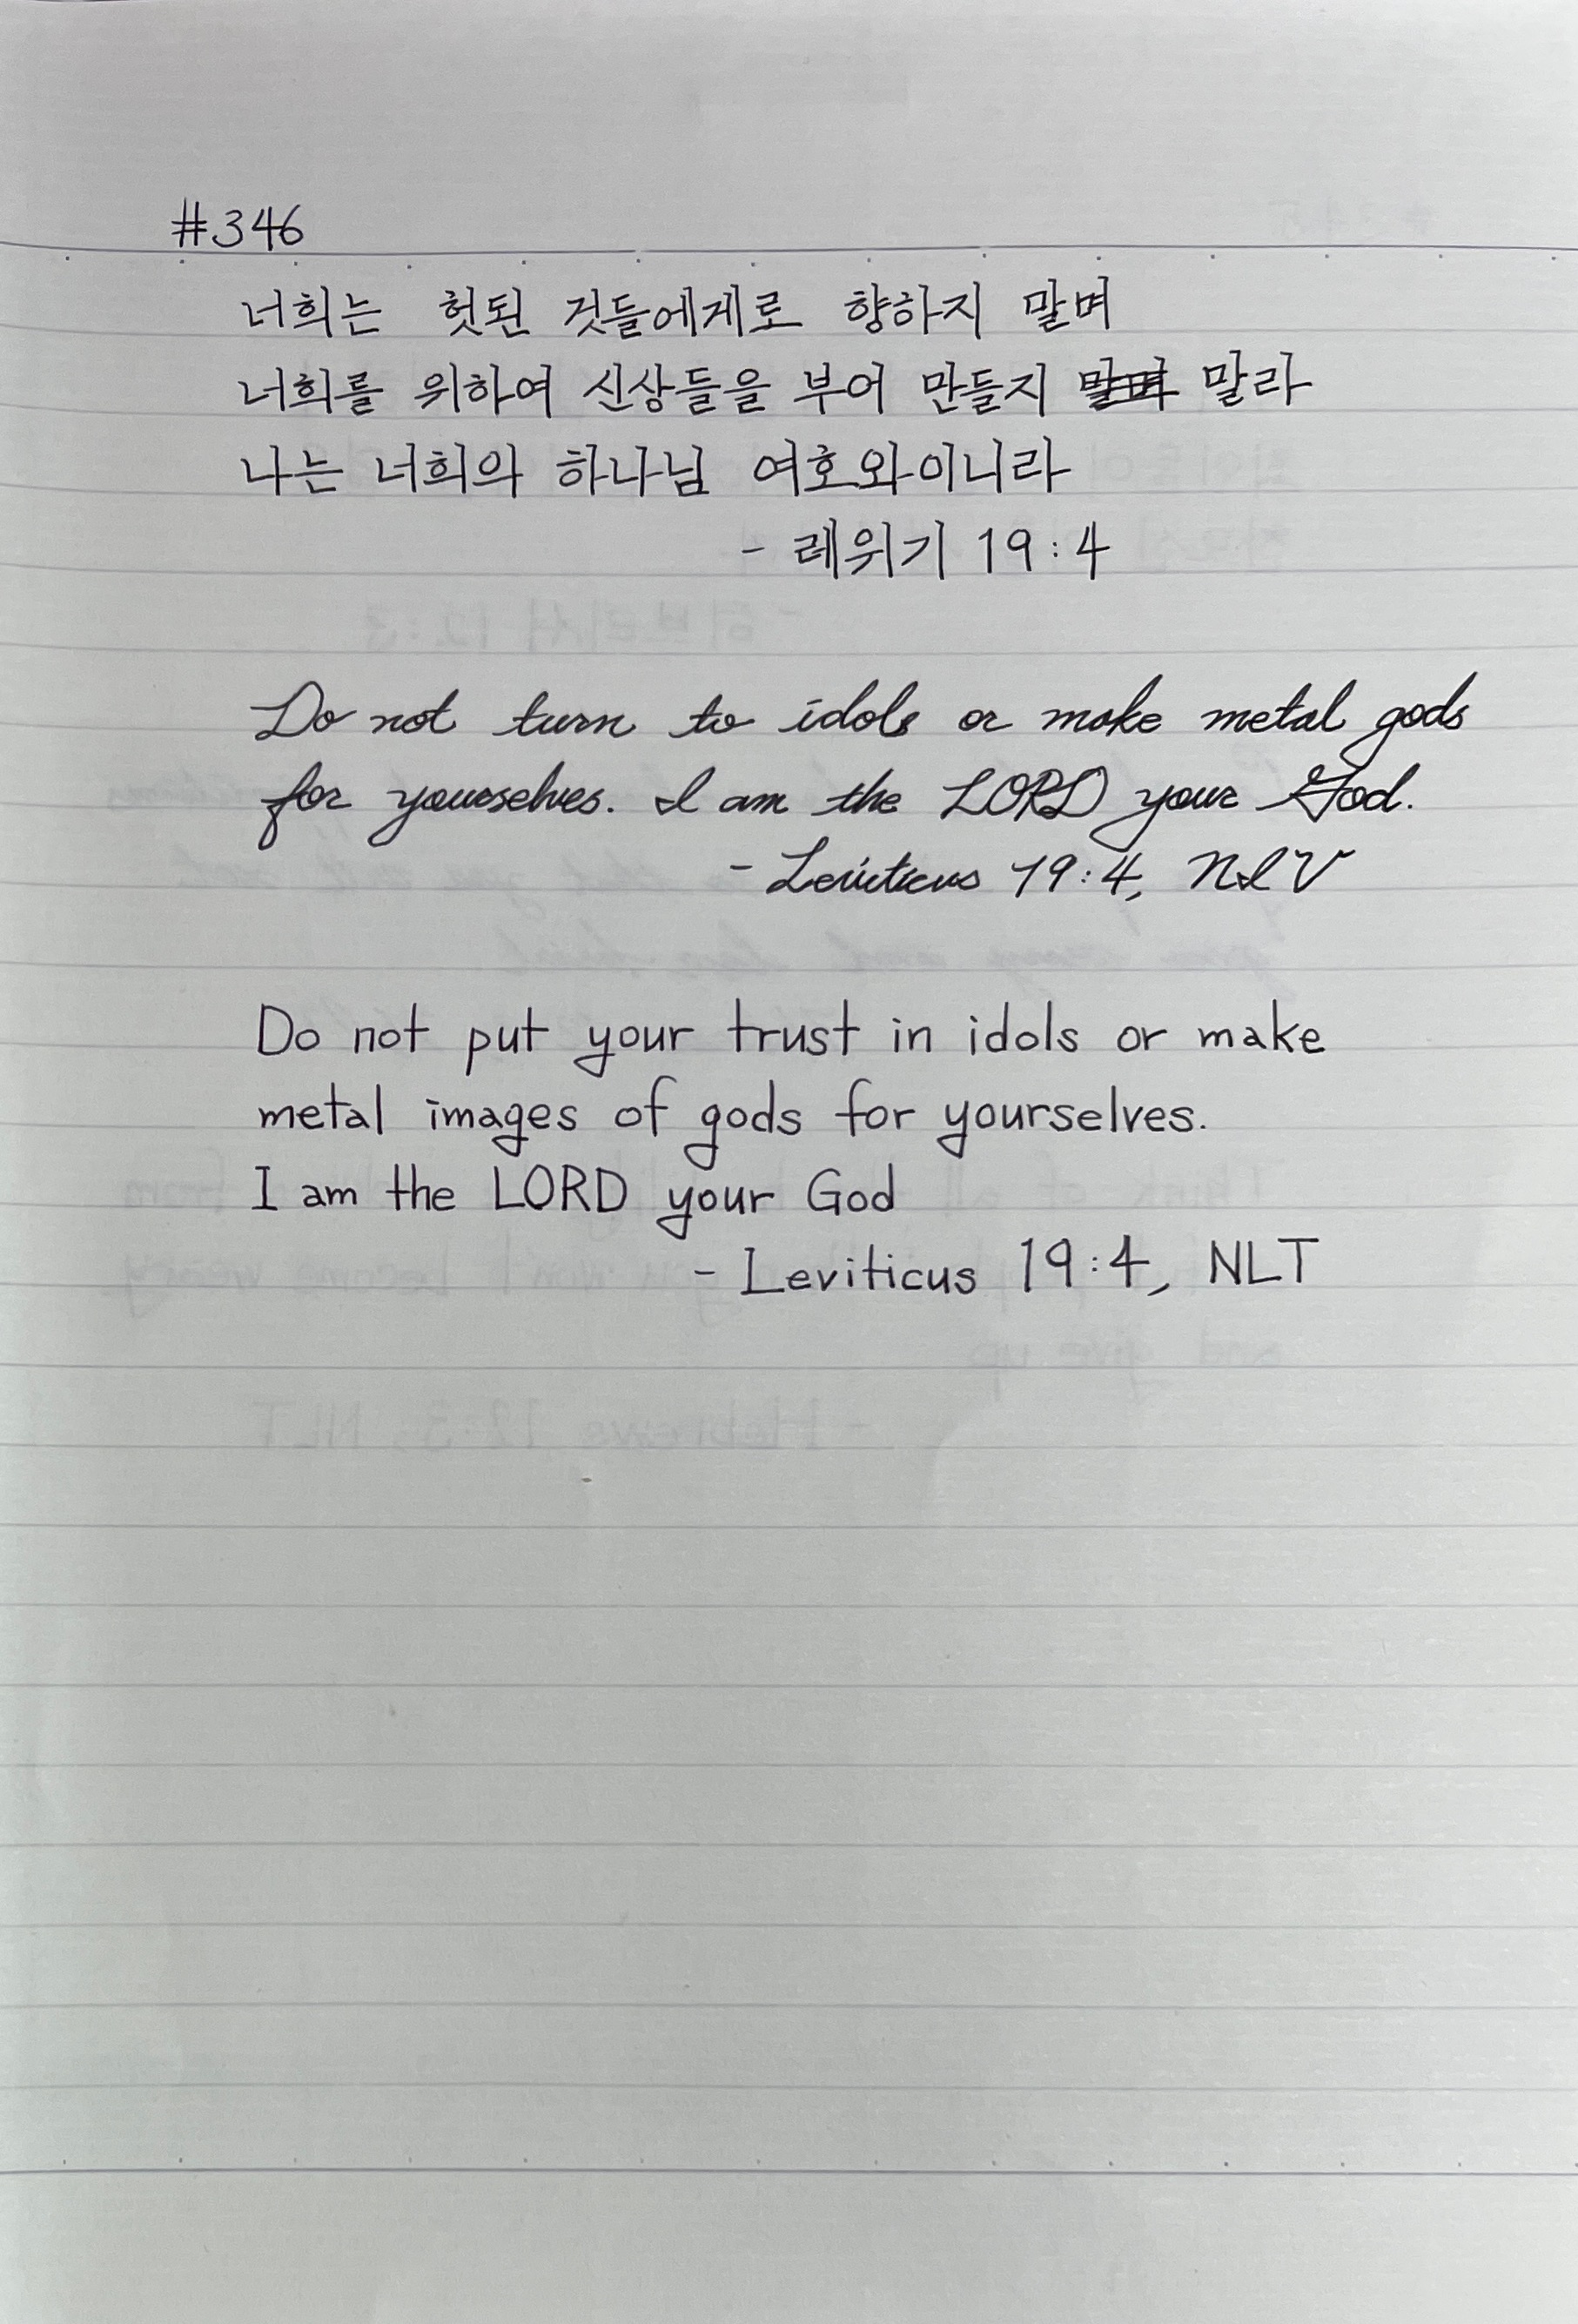 #346
너희는 헛된 것들에게로 향하지 말며
너희를 위하여 신상들을 부어 만들지 말며 말라
나는 너희의 하나님 여호와이니라
- 레위기 19:4
Do not turn to idols or make metal gods
for yourselves. I am the LORD your God.
- Leviticus 19:4, NIV
Do not put your trust in idols or make
metal images of gods for yourselves.
I am the LORD your God
- Leviticus 19:4, NLT